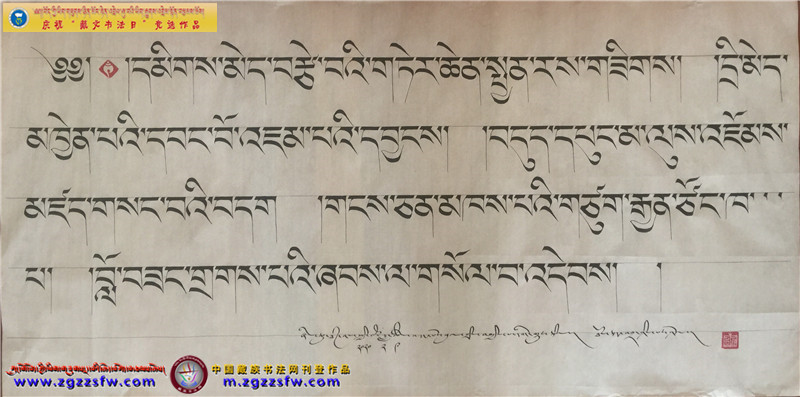 庆祝“藏文书法日”竞选作品
༄༅། །དམིགས་མེད་བརྩེ་བའི་གཏེར་ཆེན་སྤྱན་རས་གཟིགས། །དྲི་མེད་
མཁྱེན་པའི་དབང་པོ་འཇམ་པའི་དབྱངས། །བདུད་དཔུང་མ་ལུས་འཇོམས་
མཛད་གསང་བའི་བདག །གངས་ཅན་མཁས་པའི་གཙུག་རྒྱན་ཙོང་ཁ་་་
པ། །བློ་བཟང་གྲགས་པའི་ཞབས་ལ་གསོལ་བ་འདེབས། །
中国藏族书法网刊登作品
www.zgzzsfw.com
m.zgzzsfw.com